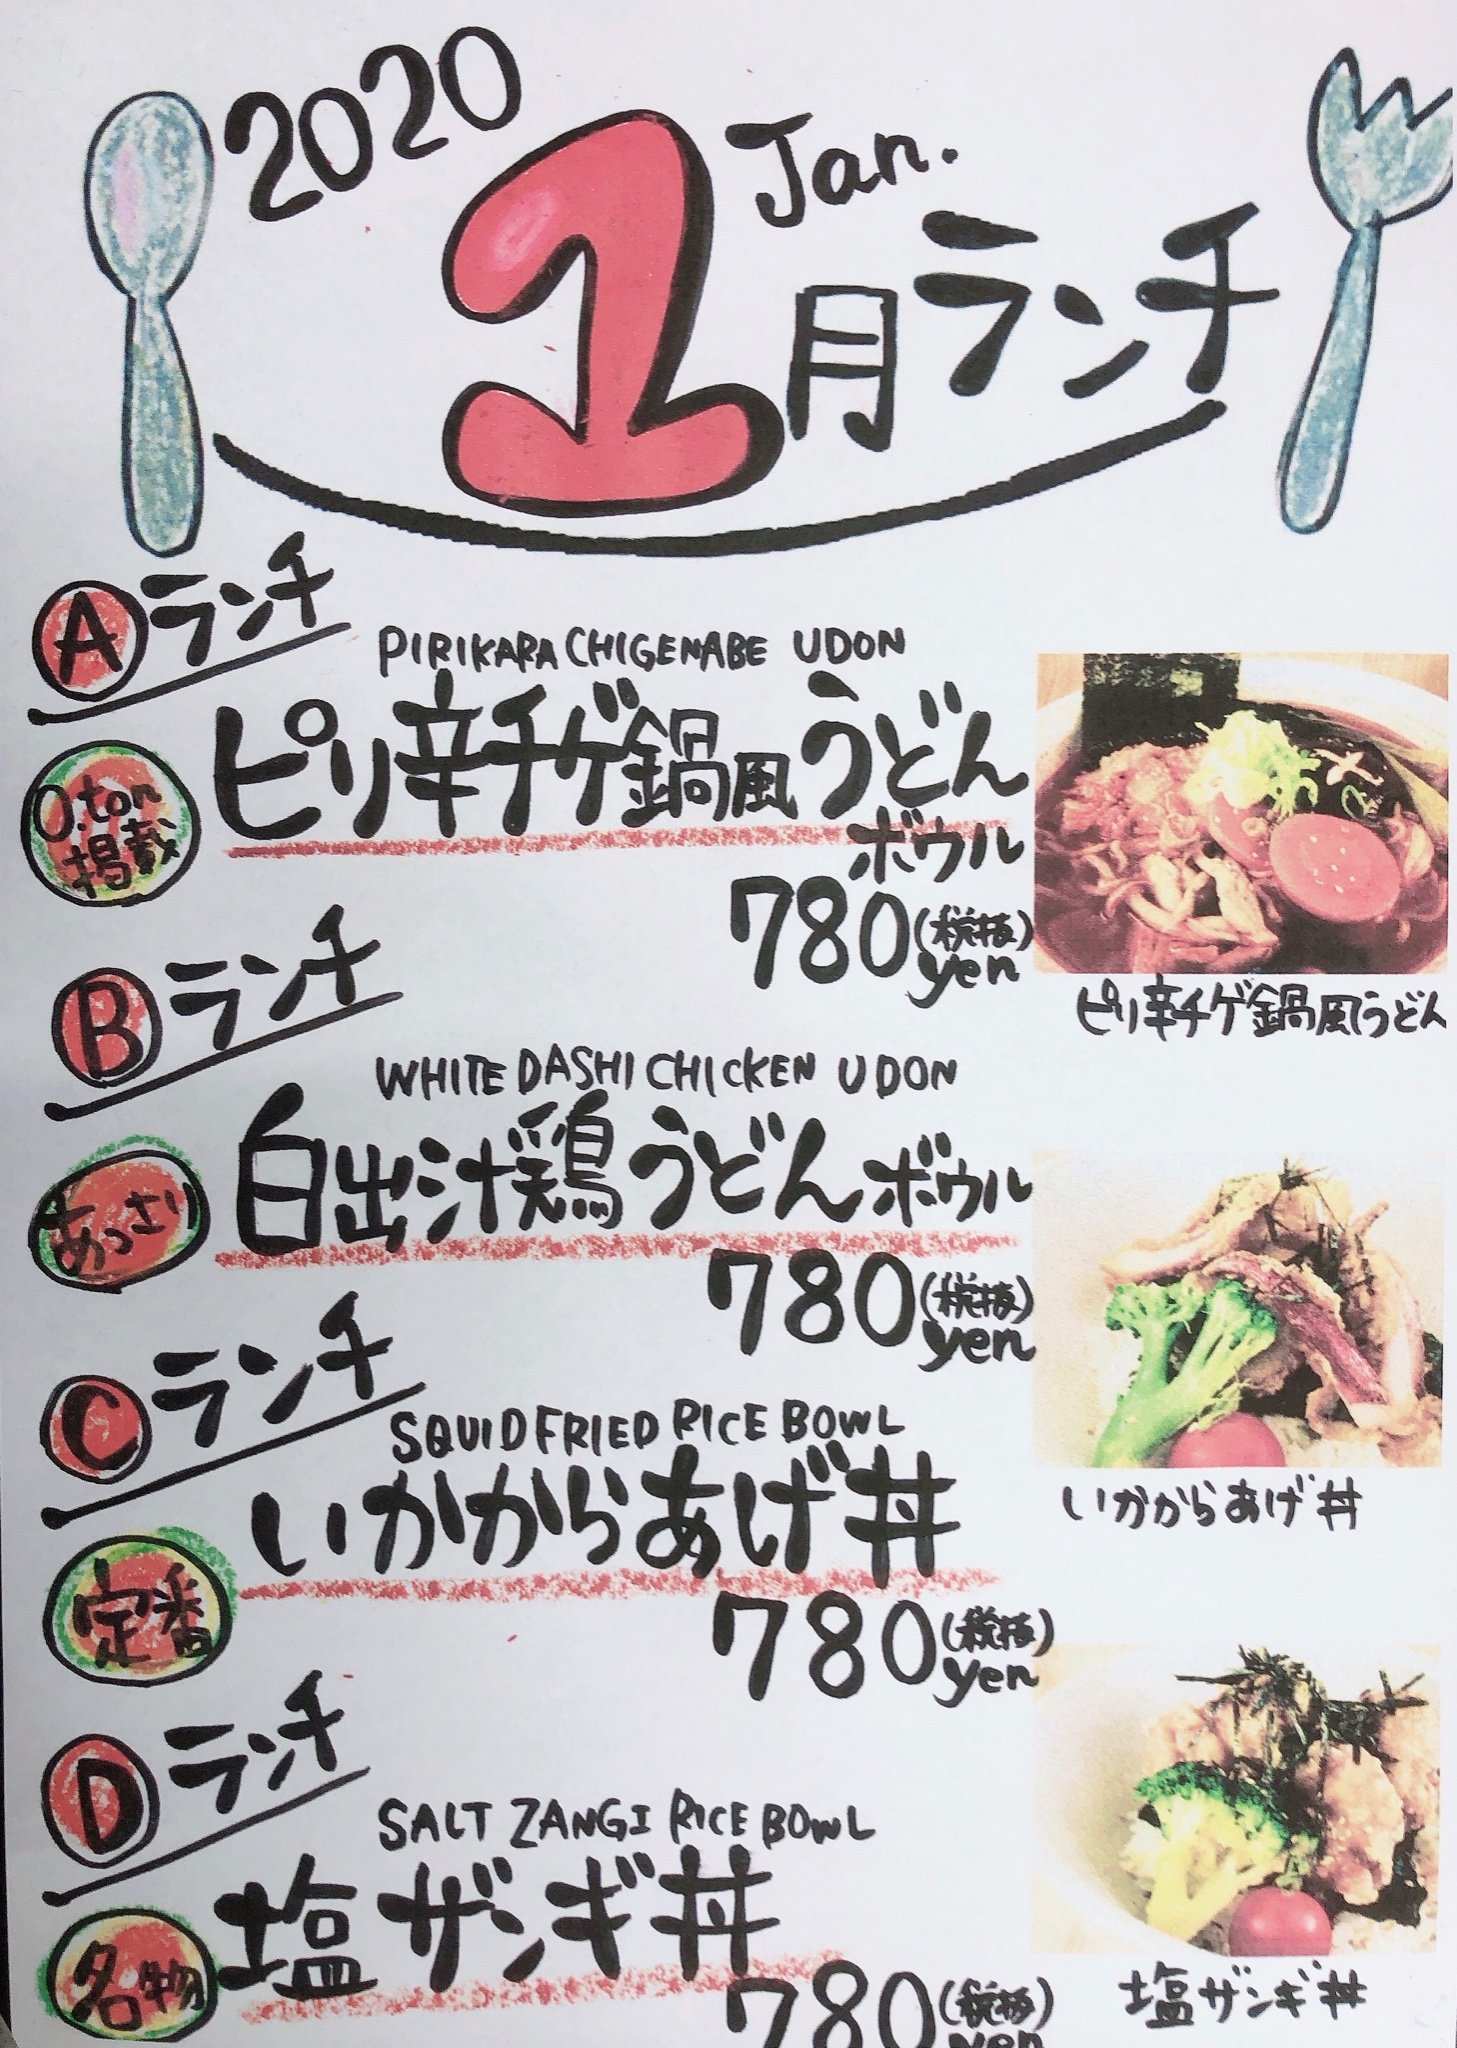 2020
1月ランチ
Jan.
Aランチ
PIRIKARA CHIGENABE UDON
ピリ辛チゲ鍋風うどん
ボウル
O.ton
掲載
780(税抜)
yen
ピリ辛チゲ鍋風うどん
Bランチ
WHITE DASHI CHICKEN UDON
白出汁鶏うどんボウル
あっさり
780(税抜)
yen
Cランチ
SQUID FRIED RICE BOWL
いかからあげ丼
いかからあげ丼
定番
780(税抜)
yen
Dランチ
SALT ZANGI RICE BOWL
塩ザンギ丼
名物
780(税抜)
yen
塩ザンギ丼